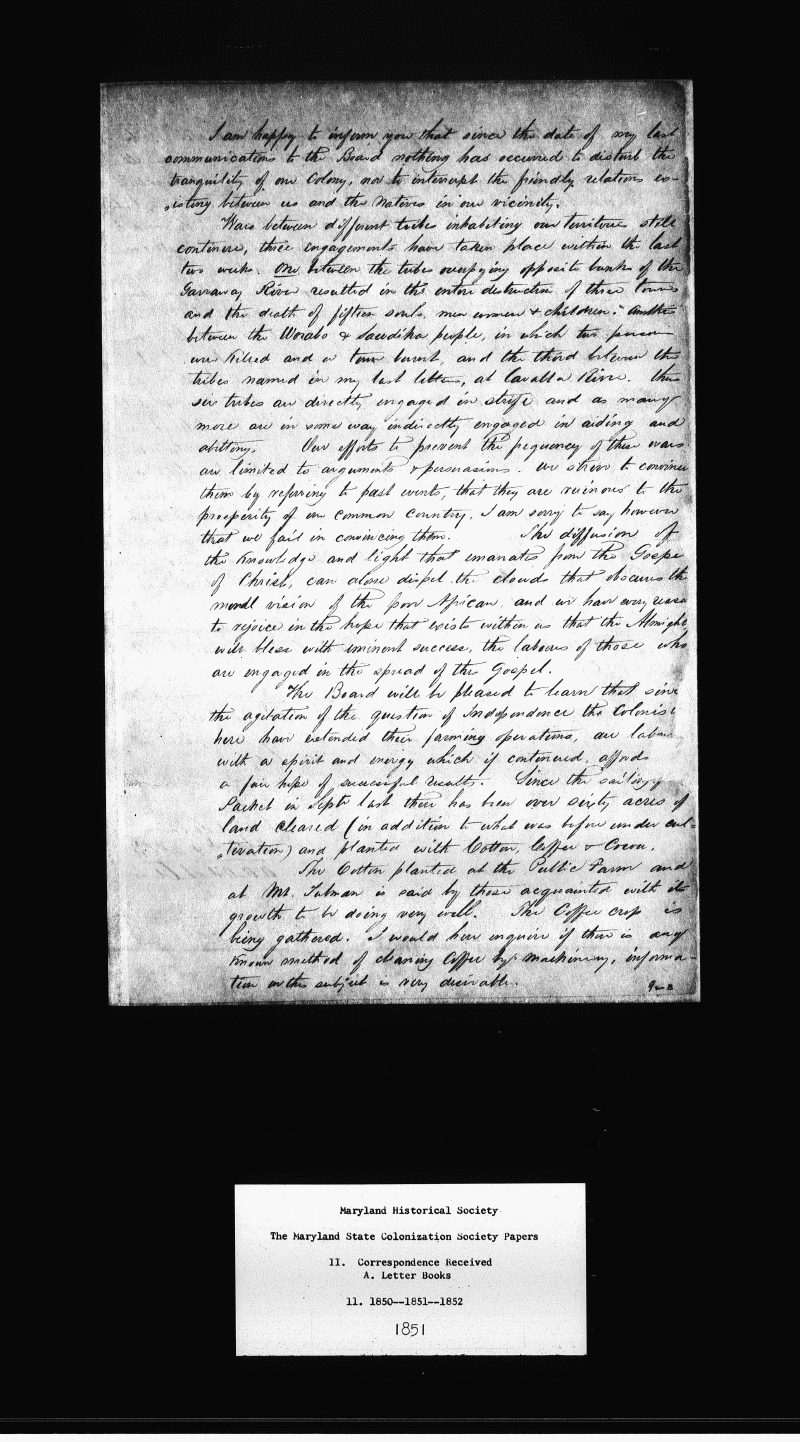 I am happy to inform you that since the date of my last
communication to the Board nothing has occurred to disturb the
tranquility of our Colony, nor to interrupt the friendly relations ex-
isting between us and the Natives in our vicinity.
Wars between different tribes inhabiting our territories still
continue, three engagements have taken place within the last
two weeks. One between the tribes occupying opposite banks of the
Garraway River resulted in the entire destruction of three towns
and the death of fifteen souls, men women & children. Another
between the Worabo & Saudika people, in which two persons
were Killed and a town burnt, and the third between the
tribes named in my last letters, at Cavalla River. Thus
six tribes are directly engaged in strife and as many
more are in some way indirectly engaged in aiding and
abetting. Our efforts to prevent the frequency of these wars
are limited to arguments & persuasions. We strive to convince
them by referring to past events, that they are ruinous to the
prosperity of our common country. I am sorry to say however
that we fail in convincing them. The diffusion of
the Knowledge and light that emanates from the Gospe
of Christ, can alone dispel the clouds that obscures the
moral vision of the poor African, and we have every reason
to rejoice in the hope that exists within us that the Almight
will bless with eminent success, the labours of those who
are engaged in the spread of this Gospel.
The Board will be pleased to learn that since
the agitation of the question of Independence the Colonist
here have extended their farming operations, are labou
with a spirit and energy which if continued, affords
a fair hope of successful results. Since the sailing of
Packet in Septr last there has been over sixty acres of
land cleared (in addition to what was before under cul-
tivation) and planted with Cotton, Coffee & Cocoa.
The Cotton planted at the Public Farm and
at Mt. Tubman is said by those acquainted with its
growth to be doing very well. The Coffee crop is
being gathered. I would here enquire if there is any
Known method of cleaning Coffee by machinery, informa-
tion on this subject is very desirable.
Maryland Historical Society
The Maryland State Colonization Society Papers
II. Correspondence Received
A. Letter Books
11. 1850--1851--1852
1851